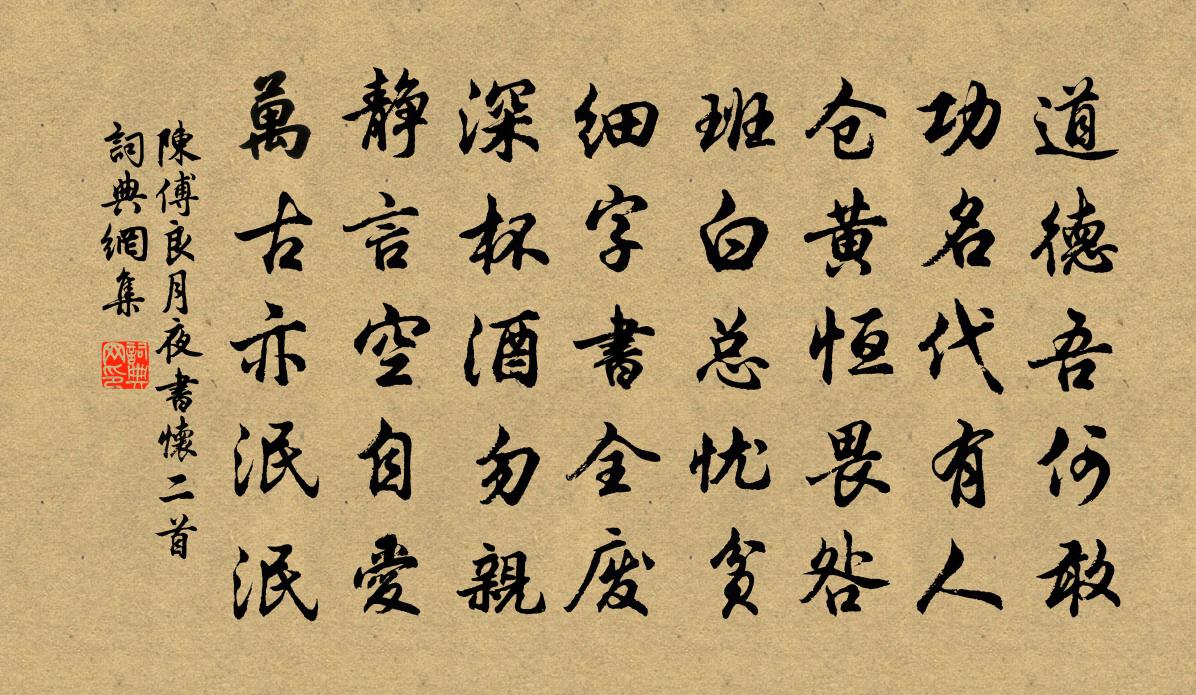 道德吾何敢
功名代有人
仓黄恒畏咎
班白总忧贫
细字書全废
深杯酒勿親
静言空自愛
萬古亦泯泯
陳傅良月夜書懷二首
詞典網集
詞典网印